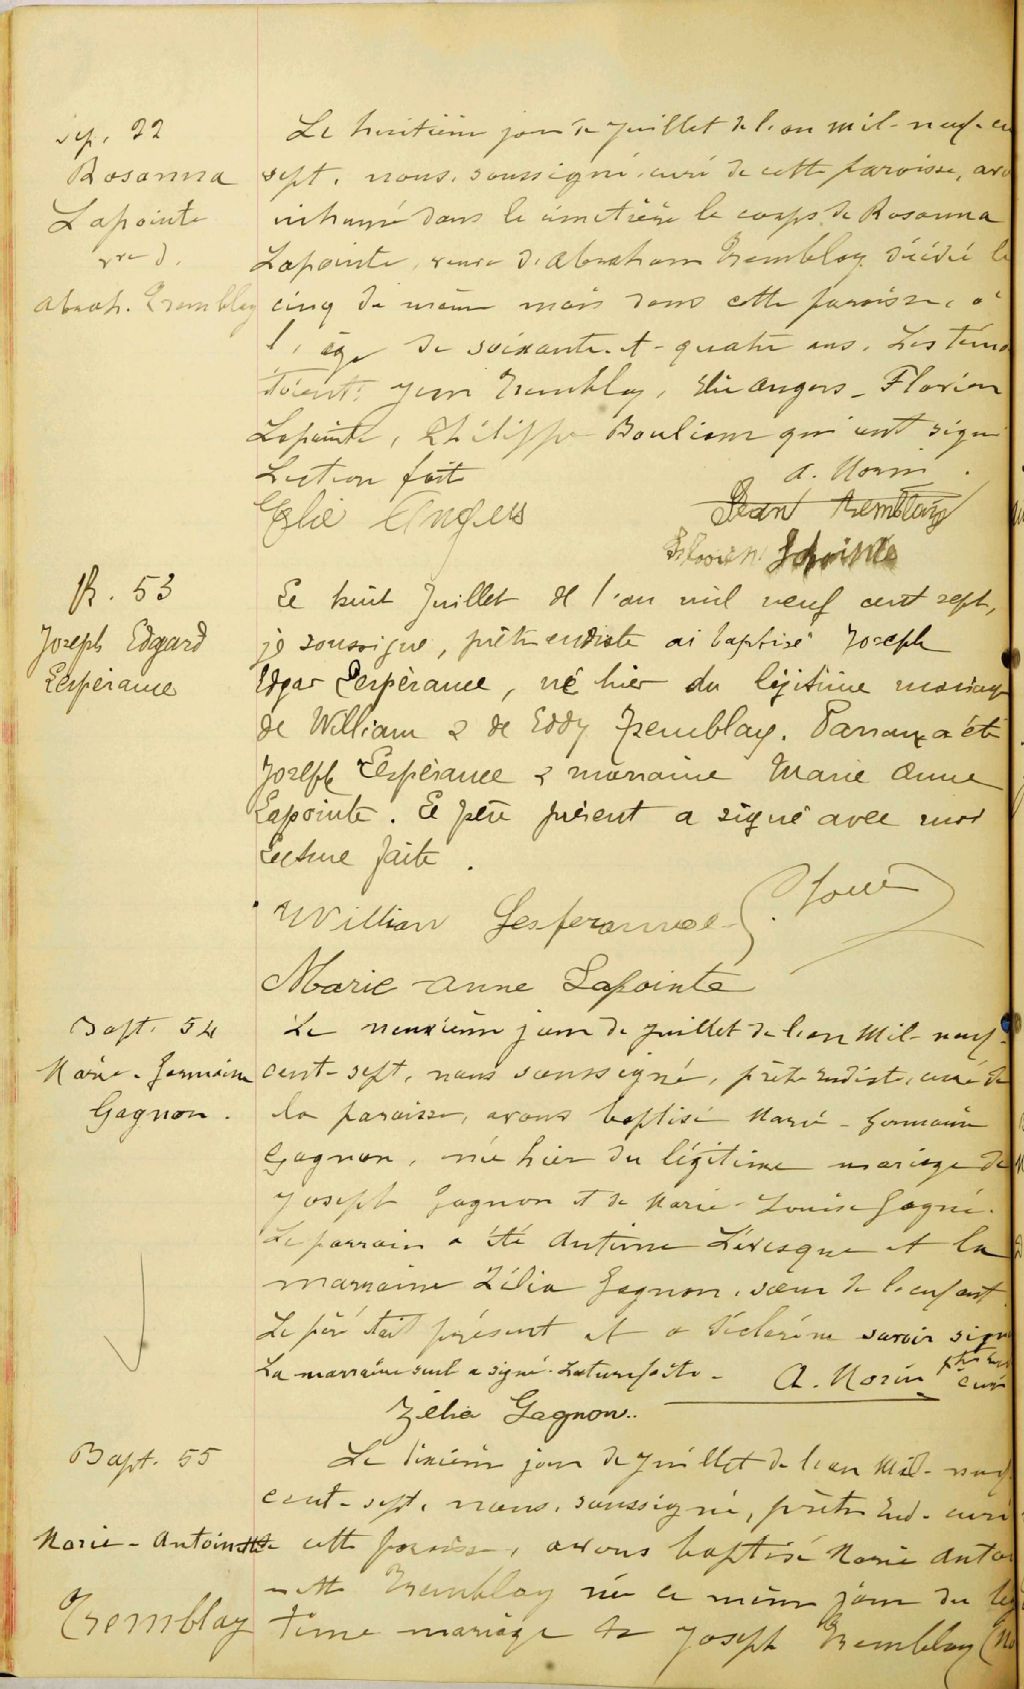 Sep. 22
Rosanna
Lapointe
vve d.
Abrah. Tremblay
Le huitième jour de Juillet de l'an mil-neuf-
sept, nous, soussigné, curé de cette paroisse,
inhumé dans le cimetière le corps de Rosanna
Lapointe, veuve d'Abraham Tremblay, décédée le
cinq du même mois dans cette paroisse, à
l'âge de soixante-et-quatre ans. Les
étaient: Jean Tremblay, Elie Angers, Florian
Lapointe, Philippe Boulianne qui ont signé
Lecture faite
A. Morin
Elie Angers
Jean Tremblay
Florien Lapointe
B. 53
Joseph Edgard
Lespérance
Le huit Juillet de l'an mil neuf cent sept,
je soussigné, prêtre eudiste ai baptisé Joseph
Edgar Lespérance, né hier du légitime mariage
de William & de Eddy Tremblay. Parrain a été
Joseph Lespérance & marraine Marie Anne
Lapointe. Le père présent a signé avec moi
Lecture faite.
William Lesperance
Marie Anne Lapointe
Bapt. 54
Marie-Germaine
Gagnon.
Le neuvième jour de Juillet de l'an Mil-neuf-
cent-sept, nous soussigné, prêtre eudiste, curé de
la paroisse, avons baptisé Marie-Germaine
Gagnon, née hier du légitime mariage de
Joseph Gagnon et de Marie-Louise Gagné.
Le parrain a été Antime Lévesque et la
marraine Zélia Gagnon, sœur de l'enfant.
Le père était présent et a déclaré ne savoir signer
La marraine seule a signé. Lecture faite.
A. Morin ptre eud. curé
Zélia Gagnon..
Bapt. 55
Marie-Antoinette
Tremblay
Le dixième jour de Juillet de l'an Mil-neuf-
cent-sept, nous, soussigné, prêtre Eud. curé
de cette paroisse, avons baptisé Marie Antoi
nette Tremblay née ce même jour du lég
time mariage de Joseph Tremblay